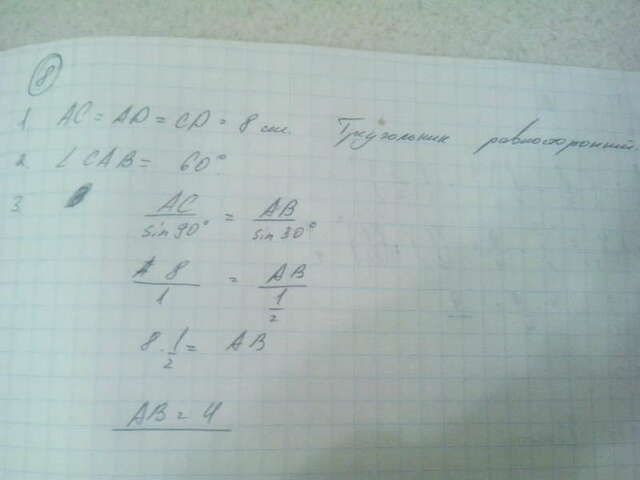 8
1. AC = AD = CD = 8 см. Треугольник равносторонний.
2. ∠ CAB = 60°.
3. AC/sin 90° = AB/sin 30°
8/1 = AB/(1/2)
8 · 1/2 = AB
AB = 4